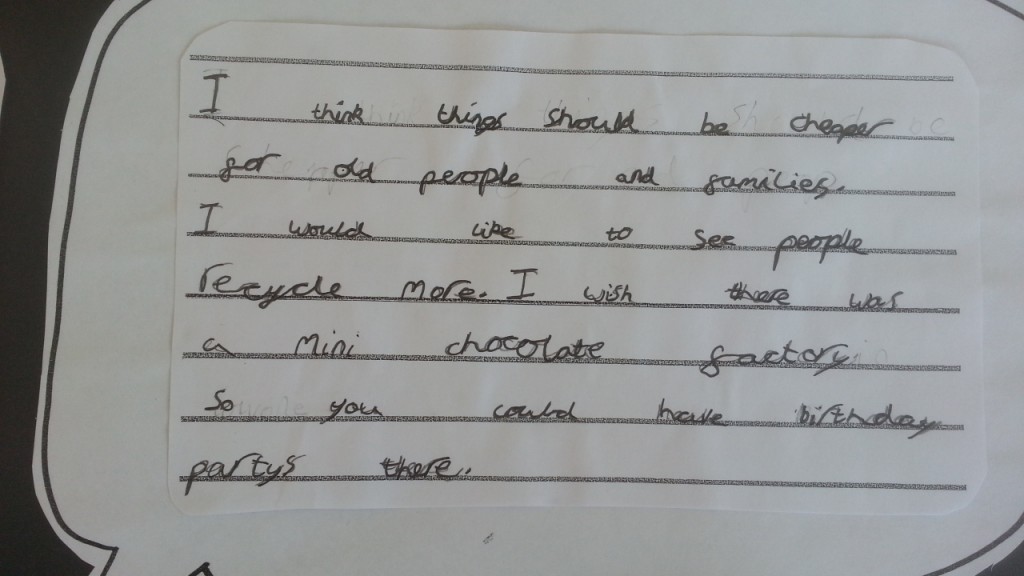 I think things should be cheaper
for old people and families.
I would like to see people
recycle more. I wish there was
a mini chocolate factory
so you could have birthday
partys there.